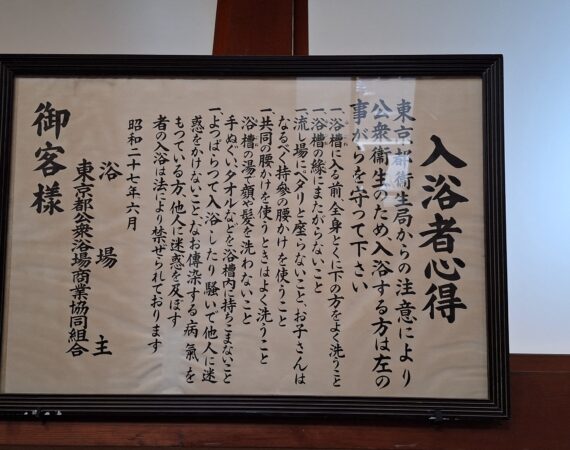 入浴者心得
東京都衞生局からの注意により
公衆衞生のため入浴する方は左の
事がらを守つて下さい
一、浴槽に入る前全身とくに下の方をよく洗うこと
一、浴槽の縁にまたがらないこと
一、流し場にペタリと座らないこと、お子さんは
なるべく持參の腰かけを使うこと
一、共同の腰かけを使うときはよく洗うこと
浴槽の湯で顔や髪を洗わないこと
手ぬぐい、タオルなどを浴槽内に持ちこまないこと
一、よつぱらつて入浴したり騒いで他人に迷
惑をかけないこと、なお傳染する病氣を
もつている方、他人に迷惑を及ぼす
者の入浴は法により禁ぜられております
昭和二十七年六月
浴場主
東京都公衆浴場商業協同組合
御客様